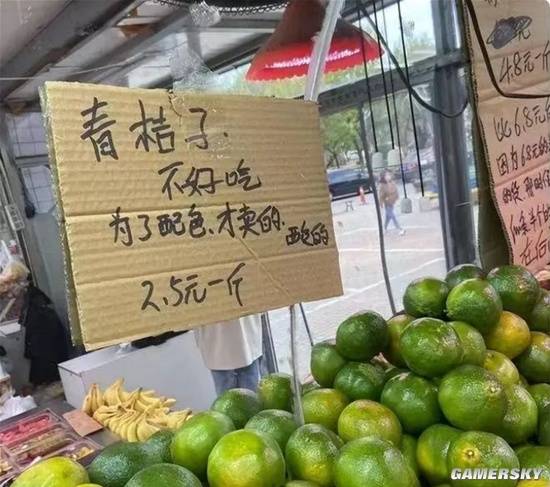 青桔子.
不好吃
为了配色、才卖的.
酉已色的
2.5元一斤
元
4.8元一斤
以6.8元
因为6.8元的
的货.
在后
GAMERSKY